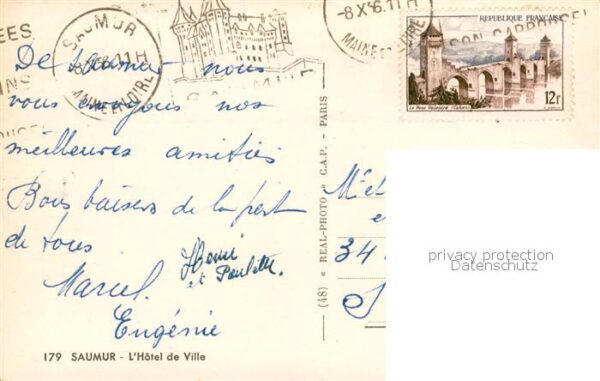 SAUMUR
11H
MAINE ET LOIRE
8 X 56 11H
MAINE ET LOIRE
REPUBLIQUE FRANÇAISE
Le Pont Valentré (Cahors)
12F
De Saumur nous
vous envoyons nos
meilleures amitiés
Bons baisers de la part
de tous
Henri
et Paulette.
Marcel.
Eugénie
179 SAUMUR - L'Hôtel de Ville
(48) « REAL-PHOTO » C.A.P. - PARIS
M. et
34
privacy protection
Datenschutz